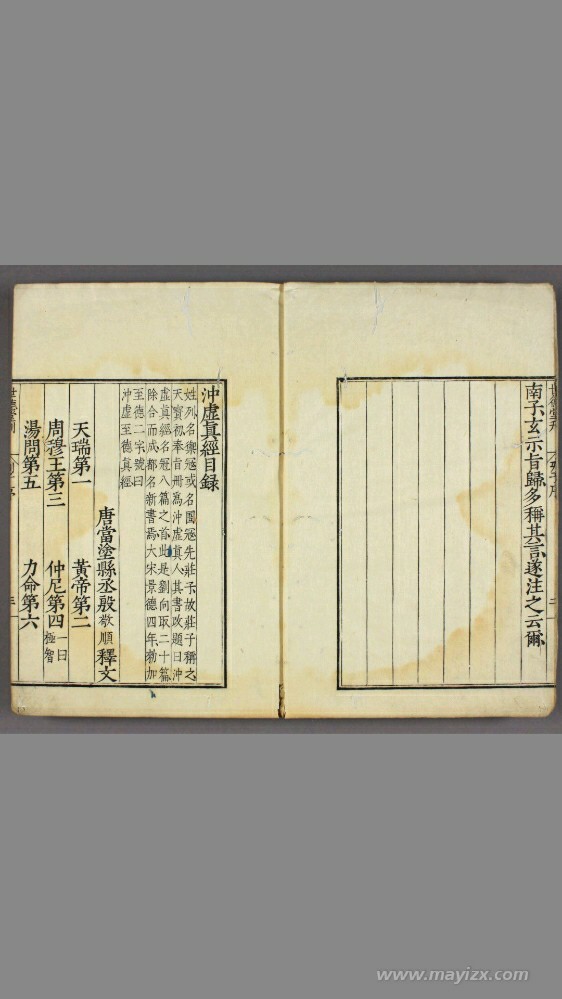 南子玄示旨歸多稱其言遂注之云爾
沖虛眞經目録
姓列名禦寇或名圄寇先莊子故莊子稱之
天寶初奉旨冊爲沖虛真人其書改題曰沖
虛真經名冠八篇之首此是劉向取二十篇
除合而成都名新書焉大宋景德四年勑加
至德二字號曰
沖虛至德真經
唐當塗縣丞殷敬順釋文
天瑞第一 黃帝第二
周穆王第三 仲尼第四一曰極智
湯問第五 力命第六
www.mayizx.com